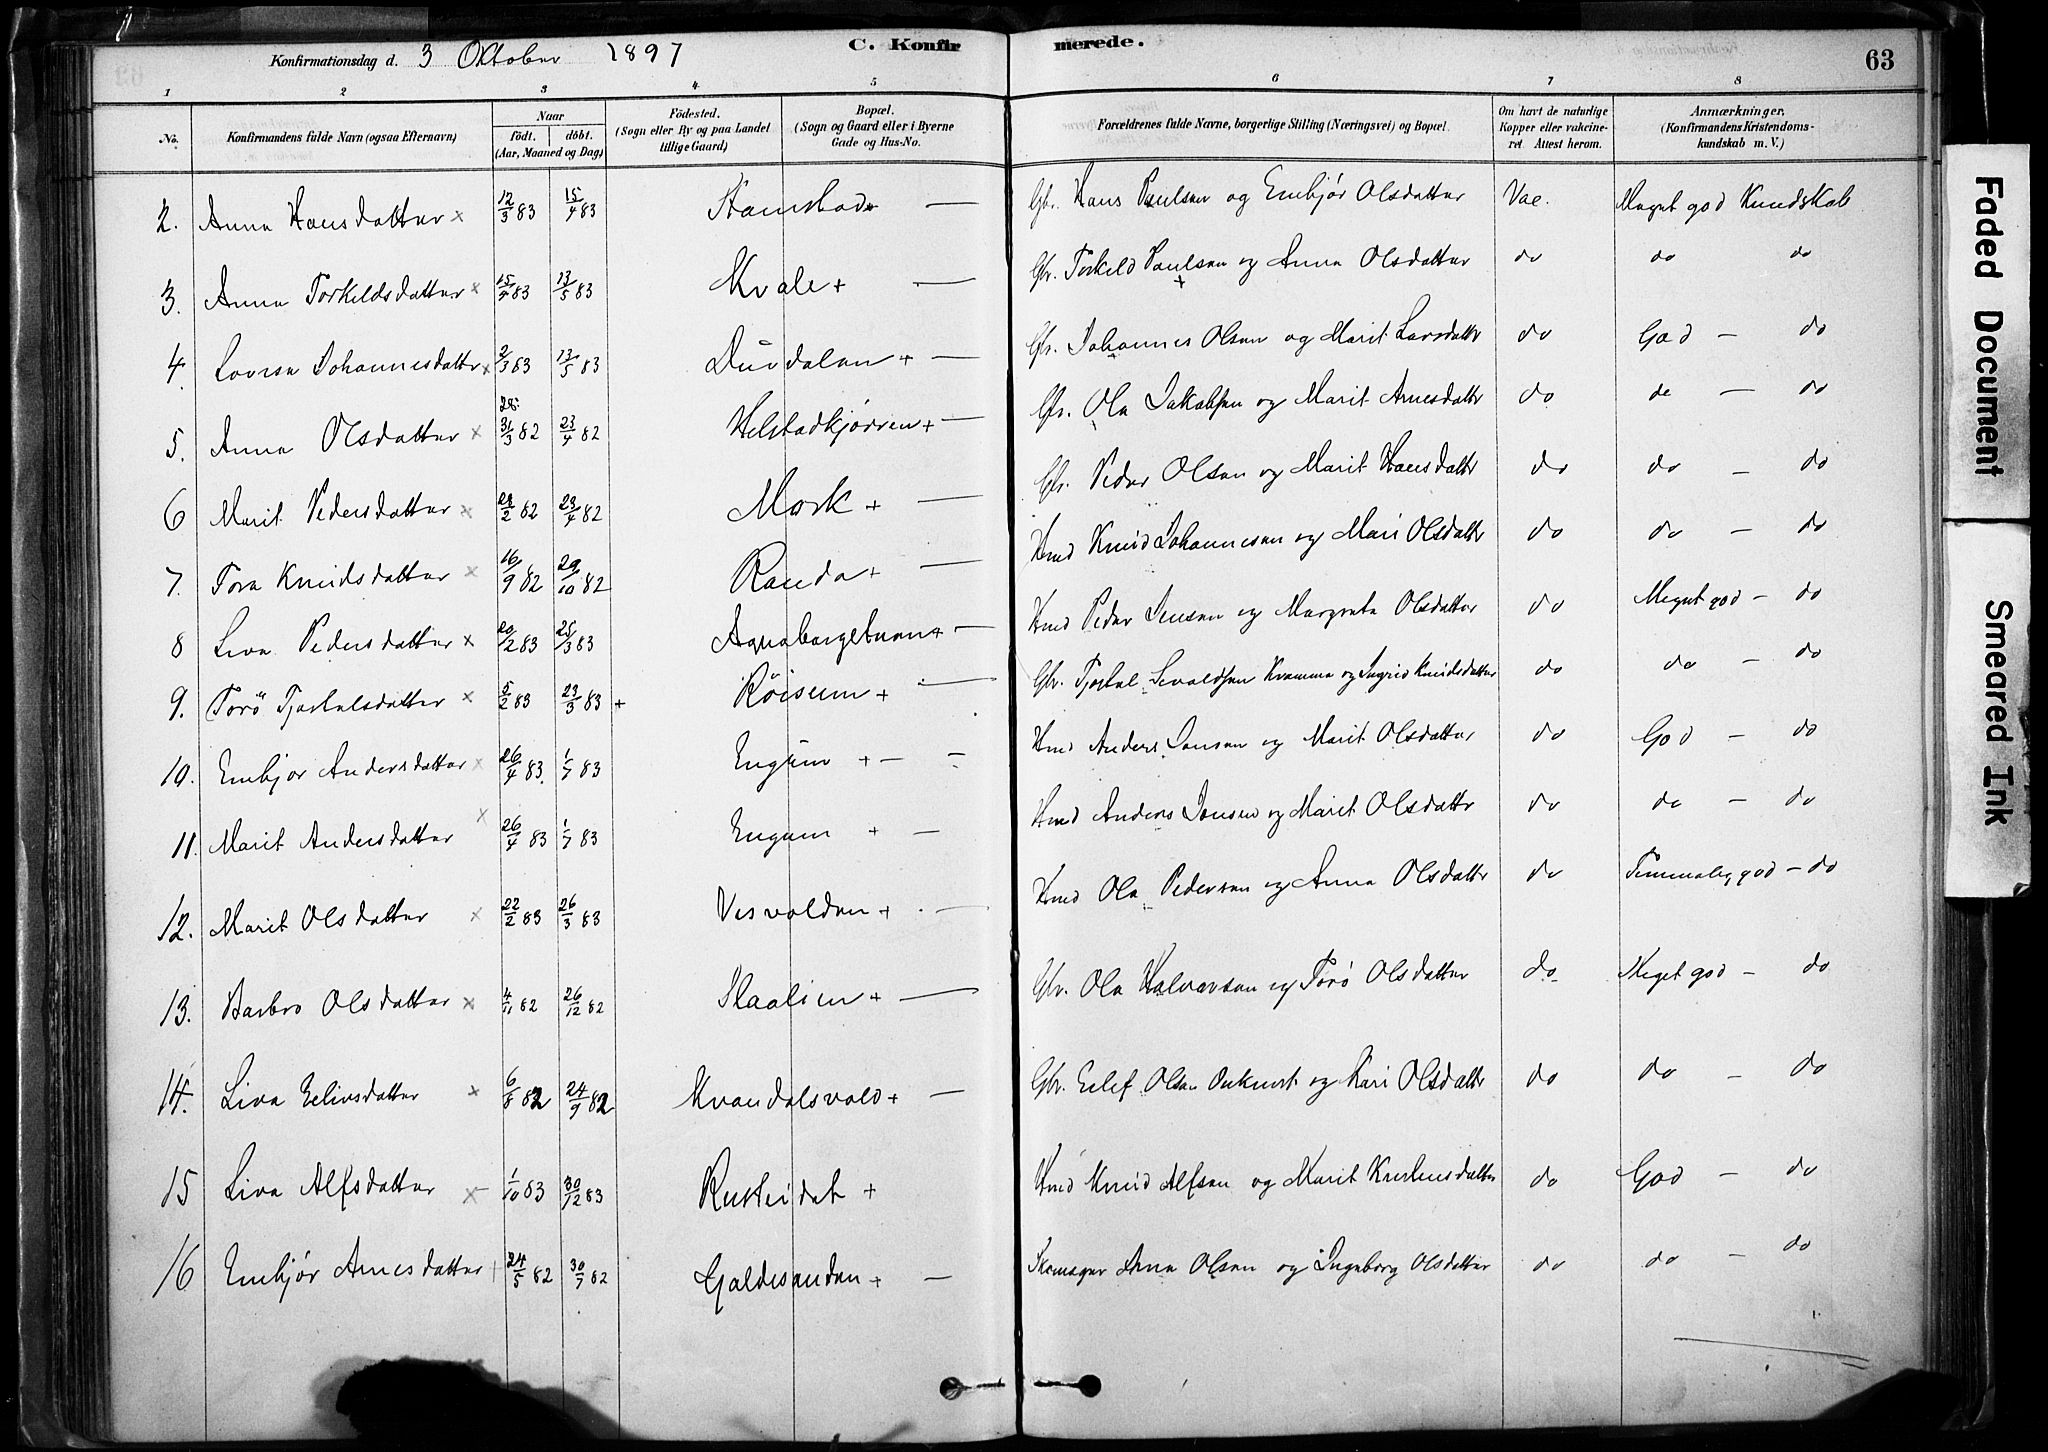 Konfirmationsdag d. 3 Oktober 1897 C. Konfirmerede. 63
1 2 3 4 5 6 7 8
No. Konfirmandens fulde Navn (ogsaa Efternavn) Naar født. døbt. (Aar, Maaned og Dag) Fødested. (Sogn eller By og paa Landet tillige Gaard) Bopæl. (Sogn og Gaard eller i Byerne Gade og Hus-No. Forældrenes fulde Navne, borgerlige Stilling (Næringsvei) og Bopæl. Om havt de naturlige Kopper eller vakcineret. Attest herom. Anmærkninger. (Konfirmandens Kristendomskundskab m. V.)
2. Anna Hansdatter x 12/3 83 15/4 83 — Gbr. Hans Paulsen og Embjør Olsdatter Vac. Meget god Kundskab
3. Anna Torkeldsdatter x 15/4 83 13/5 83 Kvale + — Gbr. Torkeld Paulsen og Anna Olsdatter do do do
4. Lovise Johannesdatter x 2/3 83 13/5 83 Durdalen + — Gbr. Johannes Olsen og Marit Larsdatter do God — do
5. Anna Olsdatter x 28. 31/3 82 23/4 82 + — Gbr. Ola Jakobsen og Marit Arnesdatter do do — do
6 Marit Pedersdatter x 23/2 82 23/4 82 Mork + — Gbr. Peder Olsen og Marit Hansdatter do do — do
7. Tora Knudsdatter x 16/9 82 29/10 82 Randa + — Hmd Knud Johannesen og Mari Olsdatter do do — do
8 Liva Pedersdatter x 20/2 83 25/3 83 + — Hmd Peder Jensen og Margrete Olsdatter do Meget god — do
9. Torö Tjostulsdatter x 5/2 83 23/3 83 + Röisum + — Gbr. Tjostul Sevaldsen Kvamme og Ingrid Knudsdatter do do — do
10. Embjør Andersdatter x 26/4 83. 1/7 83 Engum + — Hmd Anders Jonsen og Marit Olsdatter do God — do
11. Marit Andersdatter x 26/4 83 1/7 83 Engum + — Hmd Anders Jonsen og Marit Olsdatter do do — do
12. Marit Olsdatter x 22/2 83 26/3 83 Vesvolden + — Hmd Ola Pedersen og Anna Olsdatter do Temmelig god — do
13. Barbro Olsdatter x 4/11 82 26/12 82 Slaalien + — Gbr. Ola Halvorsen og Torø Olsdatter do Meget god — do
14. Liva Eelivsdatter x 6/8 82 24/9 82 Kvandalsvold + — Gbr. Eelef Olsen og Kari Olsdatter do do — do
15 Liva Alfsdatter x 1/10 83 30/12 83 Rusteidet + Hmd Knud Alfsen og Marit Kristensdatter do God — do
16 Embjør Arnesdatter + 24/5 82 30/7 82 Galdesanden + — Skomager Arne Olsen og Ingeborg Olsdatter do do — do
Faded Document
Smeared Ink